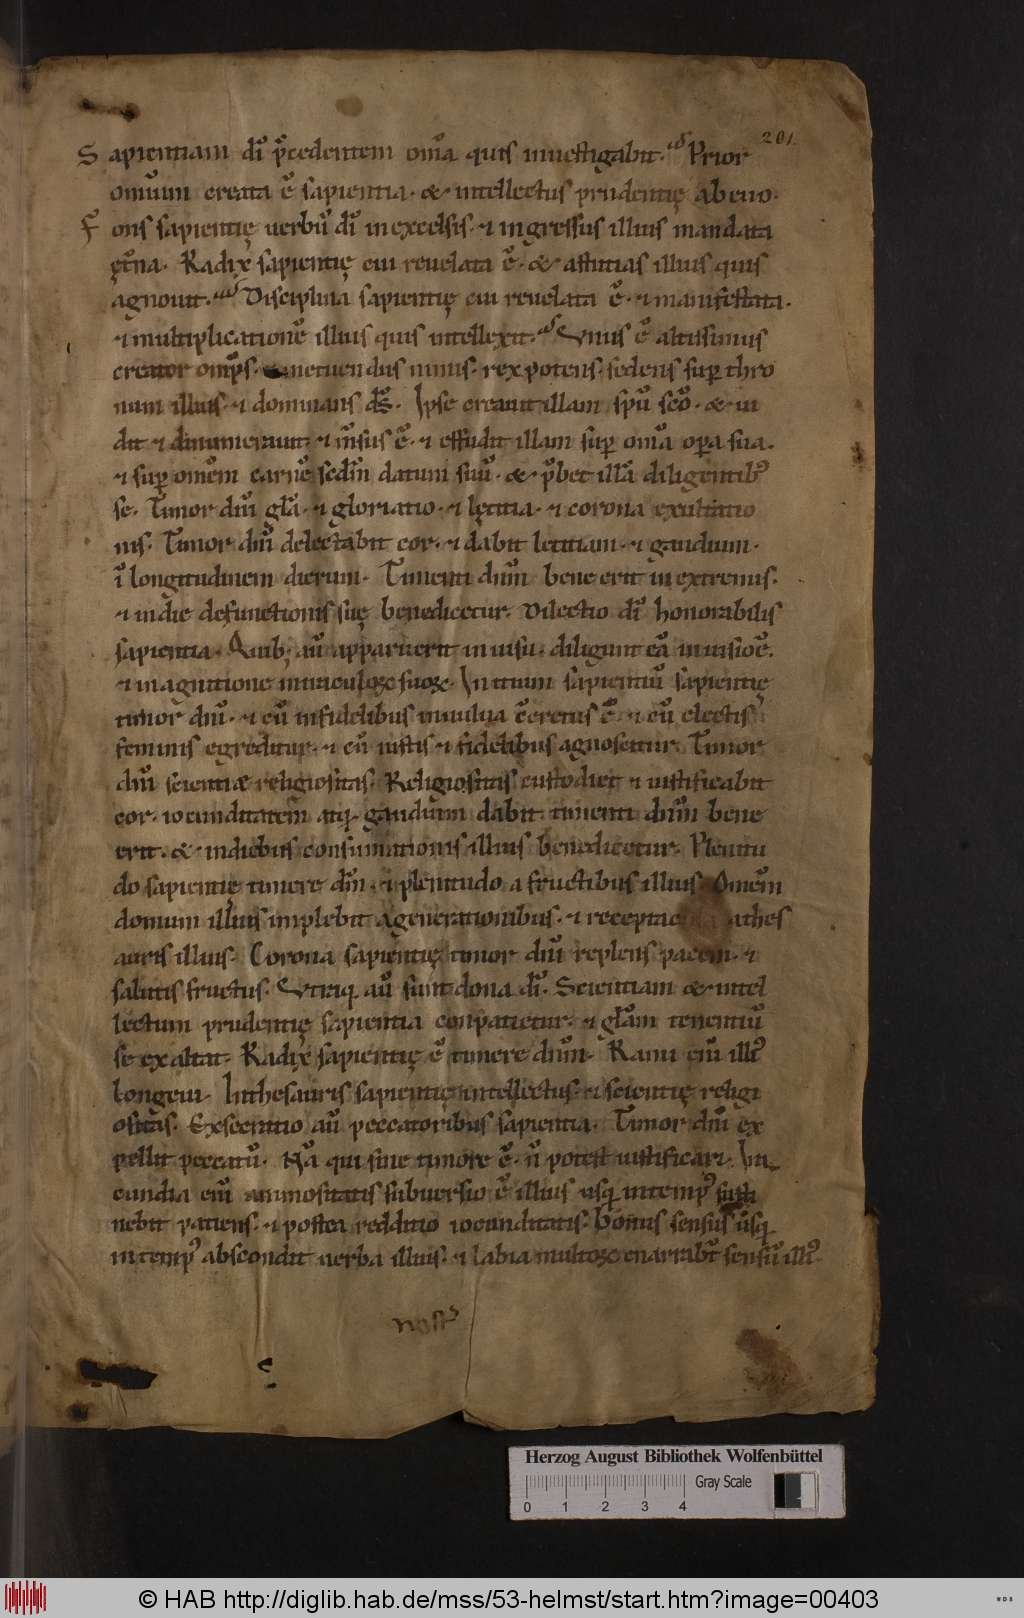 201
Sapientiam dī p̄cedentem om̄a quis inuestigabit. Prior
omniūm creata ē sapientia. & intellectus prudentię ab euo.
Fons sapientię uerbū dī in excelsis. ⁊ ingressus illius mandata
ęt̄na. Radix sapientię cui reuelata ē. & astutias illius quis
agnouit. Disciplina sapientię cui reuelata ē. ⁊ manifestata.
⁊ multiplicationē illius quis intellexit. Vnus ē altissimus
creator omīps. & metuendus nimis. rex potens. sedens sup thro
num illius. ⁊ dominans d̄s. Ipse creauit illam spū sc̄o. & ui
dit ⁊ dinumerauit. ⁊ m̄sus ē. ⁊ effudit illam sup om̄a opa sua.
⁊ sup om̄em carnē sedm̄ datum suū. & p̄bet illā diligentib'
se. Timor dn̄i gl̄a. ⁊ gloriatio. ⁊ lętitia. ⁊ corona exultatio
nis. Timor dn̄i delectabit cor. ⁊ dabit letitiam. ⁊ gaudium.
ī longitudinem dierum. Timenti dn̄m bene erit in extremis.
⁊ in die defunctionis suę benedicetur. Dilectio dī honorabilis
sapientia. Quib; aū apparuerit in uisu. diligunt eā in uisiōe.
⁊ in agnitione miraculoꝝ suoꝝ. Initium sapientiū sapientię
timor dn̄i. ⁊ cū infidelibus in uulua c̄cretus ē. ⁊ cū electis
feminis egreditur. ⁊ cū iustis ⁊ fidelibus agnoscitur. Timor
dn̄i scientiæ religiositas. Religiositas custodiet ⁊ iustificabit
cor. iocunditatem atq. gaudium dabit. timenti dn̄m bene
erit. & in diebus consumationis illius benedicetur. Plenitu
do sapientię timere dm̄. ⁊ plenitudo a fructibus illius. Omēm
domum illius implebit a generationibus. ⁊ receptac athes
auris illius. Corona sapientię timor dn̄i replens pacem. ⁊
salutis fructus. Vtraq aū sunt dona dī. Scientiam & intel
lectum prudentię sapientia conpatietur. ⁊ gl̄am tenentiū
se exaltat. Radix sapientię ē timere dn̄m. Rami eni̅ illi'
longeui. In thesauris sapientię intellectus. ⁊ scientię religi
ositas. Exsecratio aū peccatoribus sapientia. Timor dn̄i ex
pellit peccatū. Nā qui sine timore ē. n̄ potest iustificari. Ira
cundia eni̅ animositatis subuersio ē illius. usq in temp' susti
nebit patiens. ⁊ postea redditio iocunditatis. Bonus sensus usq
in temp' abscondit uerba illius. ⁊ labia multoꝝ enarrabt̄ sensū illi'.
Herzog August Bibliothek Wolfenbüttel
Gray Scale
0 1 2 3 4
© HAB http://diglib.hab.de/mss/53-helmst/start.htm?image=00403